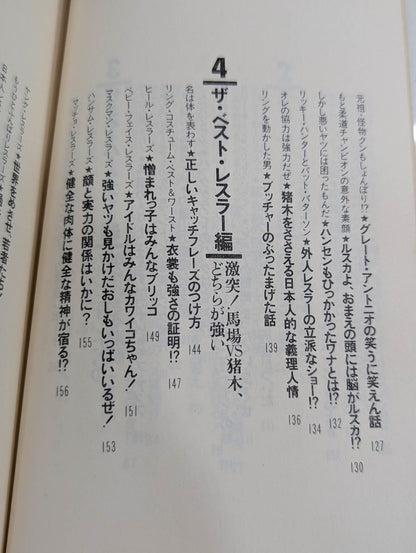 元祖・怪物クもしょんぼり!?★グレート・アントニオの笑うに笑えん話 127
もと柔道チャンピオンの意外な素顔★ルスカよ、おまえの頭には脳がルスカ!? 130
しかし悪いヤツには困ったもんだ★ハンセンもひっかかったワナとは!? 132
リッキー・ハンターとパット・パターソン★外人レスラーの立派なショー!? 134
オレの協力は強力だぜ★猪木をささえる日本人的な義理人情 136
リングを動かした男★ブッチャーのぶったまげた話 139
4 ザ・ベスト・レスラー編 激突!馬場VS猪木、どちらが強い
名は体を表わす★正しいキャッチフレーズのつけ方 144
リング・コスチューム・ベスト&ワースト★衣装も強さの証明!? 147
ヒール・レスラーズ★憎まれっ子はみんなブリッコ 149
ベビー・フェイス・レスラーズ★アイドルはみんなカワイコちゃん! 151
マスクマン・レスラーズ★強いヤツも見かけだおしもいっぱいいるぜ! 153
ハンサム・レスラーズ★顔と実力の関係はいかに? 155
マッチョ・レスラーズ★健全な肉体に健全な精神が宿る!? 156